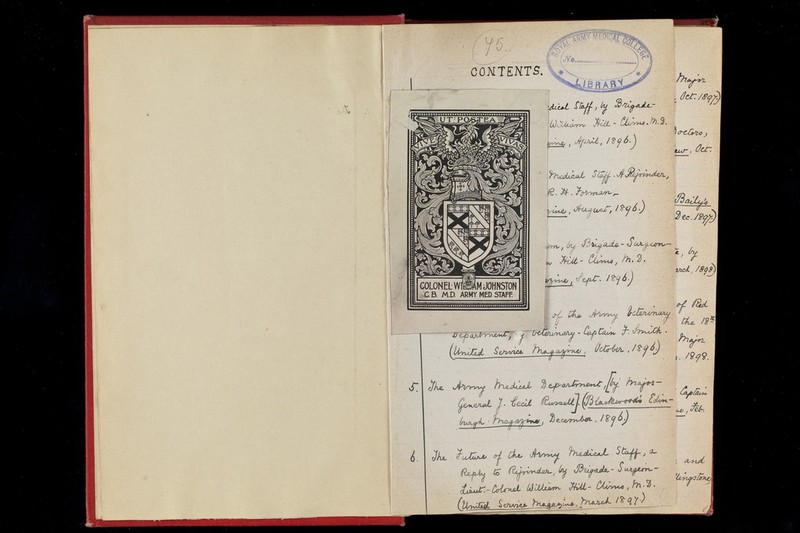 45.
ROYAL ARMY MEDICAL COLLEGE
No.
LIBRARY
CONTENTS.
UT POSTEA
VIVE VIVAS
COLONEL WILLIAM JOHNSTON
C.B. M.D. ARMY MED STAFF
Staff, by Brigade-
William Hill-Climo, M.D.
April, 1896.)
Medical Staff. A Rejoinder,
R. H. Forman.
August, 1896.)
by Brigade-Surgeon-
Hill-Climo, M.D.
Sept. 1896.)
of the Army Veterinary
Department, Veterinary-Captain F. Smith.
(United Service Magazine, October, 1896.)
5. The Army Medical Department, [by Major-
General J. Cecil Russell] (Blackwood's Edin-
burgh Magazine, December, 1896.)
6. The Future of the Army Medical Staff, a
Reply to Rejoinder, by Brigade-Surgeon-
Lieut.-Colonel William Hill-Climo, M.D.
(United Service Magazine, March 1897.)
Major
Oct. 1897)
Doctors,
Oct.
Baily's
Dec. 1897)
by
1898)
of Red
the 18th
Major
1898.
Captain
Feb.
and